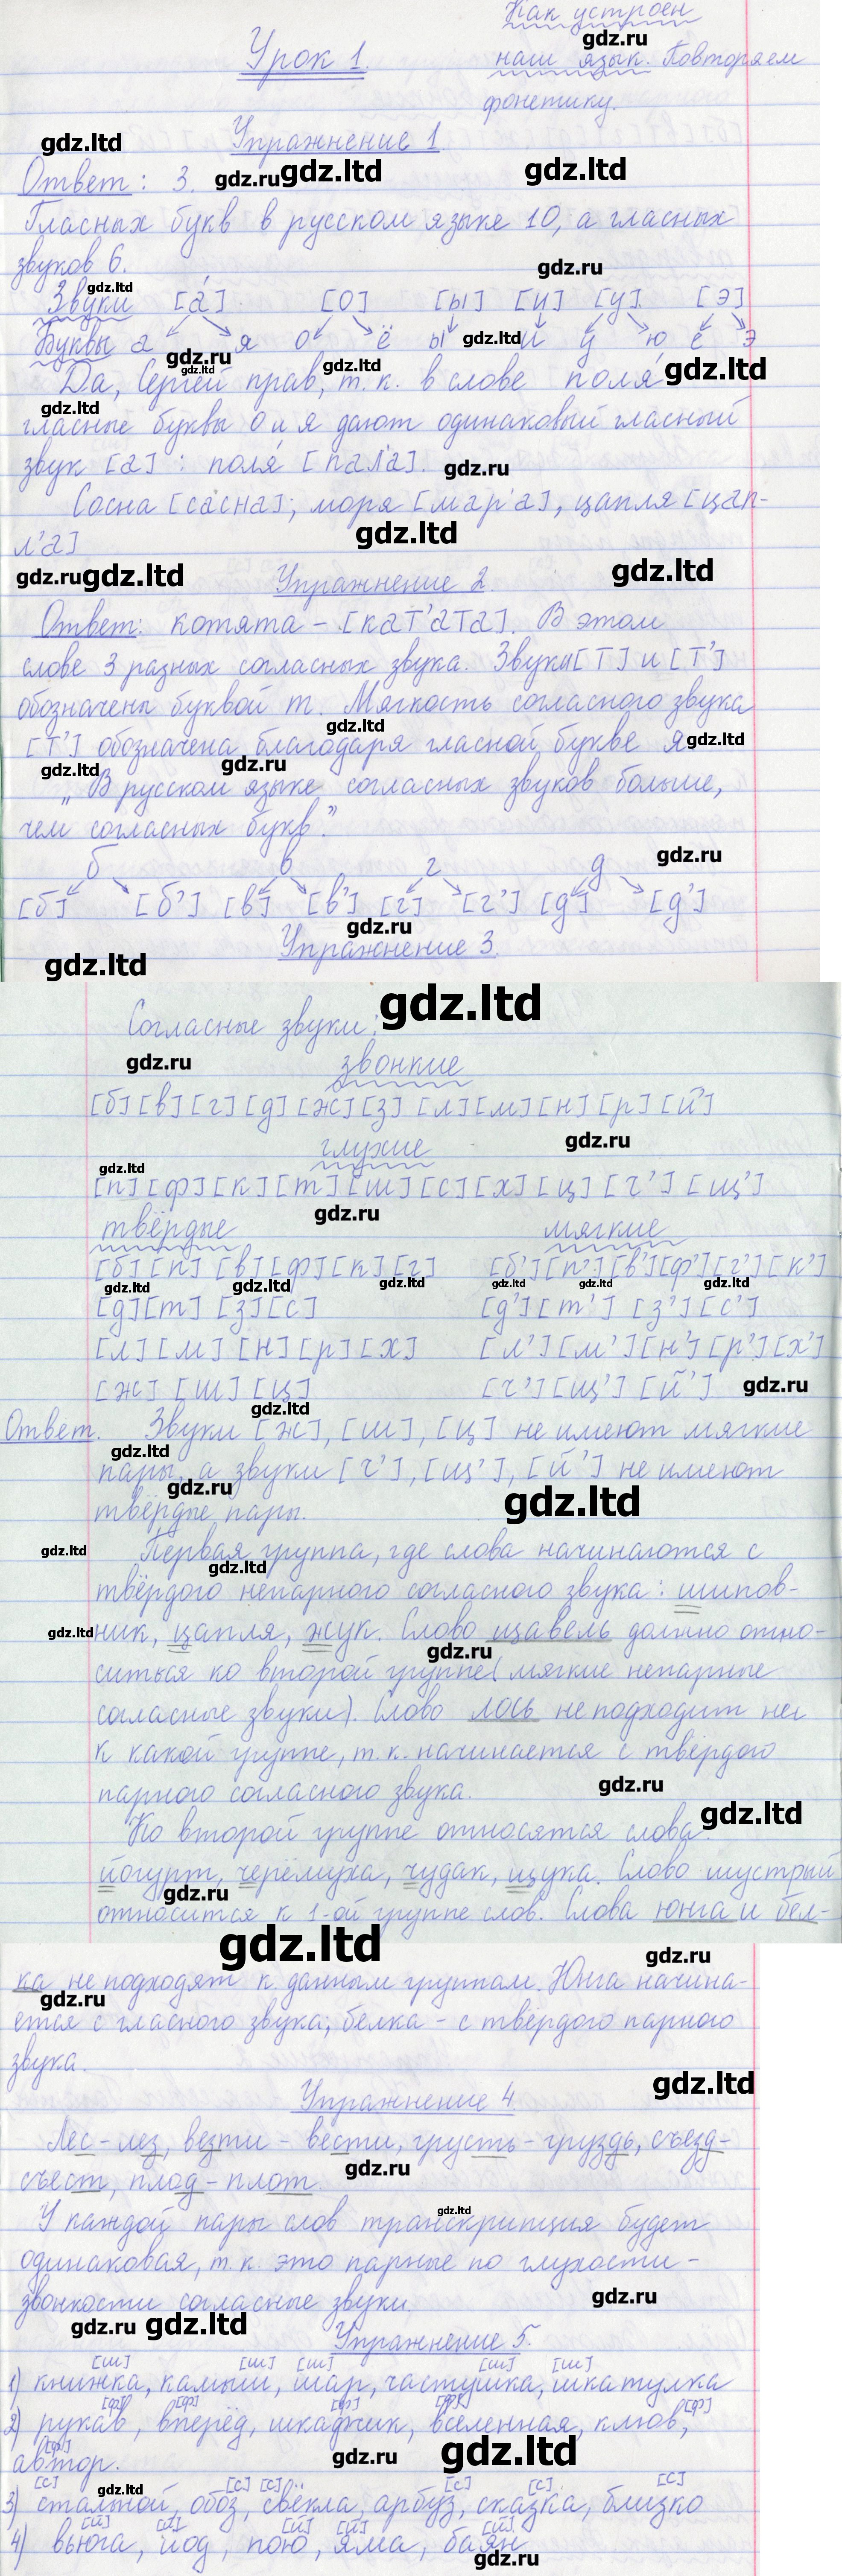 Как устроен
gdz.ru
Урок 1.
наш язык. Повторяем
фонетику.
gdz.ltd
Упражнение 1
Ответ: 3.
gdz.ru gdz.ltd gdz.ltd
Гласных букв в русском языке 10, а гласных
звуков 6.
gdz.ru
gdz.ltd
Звуки [а́] [о] [ы] [и] [у] [э]
Буквы а я о ё ы и у ю е э
gdz.ltd
gdz.ru gdz.ltd gdz.ltd gdz.ltd
Да, Сергей прав, т.к. в слове поля́
gdz.ltd
гласные буквы о и я дают одинаковый гласный
звук [а] : поля́ [пал'а].
gdz.ru
Сосна [сасна]; моря [мар'а], цапля [цап-
л'а]
gdz.ltd
gdz.ru gdz.ltd gdz.ltd
Упражнение 2.
Ответ: котята - [кат'ата]. В этом
слове 3 разных согласных звука. Звуки [т] и [т']
обозначены буквой т. Мягкость согласного звука
gdz.ltd
[т'] обозначена благодаря гласной букве я.
gdz.ltd
gdz.ltd gdz.ru
„В русском языке согласных звуков больше,
чем согласных букв."
gdz.ru
б в г д
[б] [б'] [в] [в'] [г] [г'] [д] [д']
gdz.ru
Упражнение 3.
gdz.ltd
gdz.ltd
Согласные звуки:
gdz.ru
звонкие
[б] [в] [г] [д] [ж] [з] [л] [м] [н] [р] [й']
gdz.ru
глухие
gdz.ltd
[п] [ф] [к] [т] [ш] [с] [х] [ц] [ч'] [щ']
gdz.ru
твёрдые мягкие
[б] [п] [в] [ф] [к] [г] [б'] [п'] [в'] [ф'] [г'] [к']
gdz.ltd gdz.ltd gdz.ltd gdz.ltd gdz.ltd gdz.ltd
[д] [т] [з] [с] [д'] [т'] [з'] [с']
[л] [м] [н] [р] [х] [л'] [м'] [н'] [р'] [х']
[ж] [ш] [ц] [ч'] [щ'] [й']
gdz.ru
gdz.ltd
Ответ. Звуки [ж], [ш], [ц] не имеют мягкие
gdz.ltd
пары, а звуки [ч'], [щ'], [й'] не имеют
gdz.ru gdz.ltd
твёрдые пары.
gdz.ltd
Первая группа, где слова начинаются с
gdz.ltd
твёрдого непарного согласного звука: шипов-
gdz.ltd
ник, цапля, жук. Слово щавель должно отно-
gdz.ru
ситься ко второй группе (мягкие непарные
согласные звуки). Слово лось не подходит ни
к какой группе, т.к. начинается с твёрдого
парного согласного звука.
gdz.ru
gdz.ltd
Ко второй группе относятся слова:
йогурт, черёмуха, чудак, щука. Слово шустрый
gdz.ru
относится к 1-ой группе слов. Слова юнга и бел-
gdz.ltd
gdz.ru
ка не подходят к данным группам. Юнга начина-
gdz.ru
ется с гласного звука; белка - с твёрдого парного
звука.
gdz.ltd
Упражнение 4.
Лес - лез, везти - вести, грусть - груздь, съезд-
gdz.ru
съест, плод - плот.
gdz.ltd
У каждой пары слов транскрипция будет
одинаковая, т.к. это парные по глухости -
gdz.ru
звонкости согласные звуки.
gdz.ru gdz.ltd
Упражнение 5.
[ш] [ш] [ш] [ш] [ш]
1) книжка, камыш, шар, частушка, шкатулка
[ф] [ф] [ф] [ф] [ф]
2) рукав, вперёд, шкафчик, вселенная, клюв,
[ф]
автор.
gdz.ru gdz.ltd
[с] [с] [с] [с] [с] [с]
gdz.ltd
3) стальной, обоз, свёкла, арбуз, сказка, близко
[й] [й] [й] [й] [й]
4) вьюга, йод, пою, яма, баян
gdz.ru